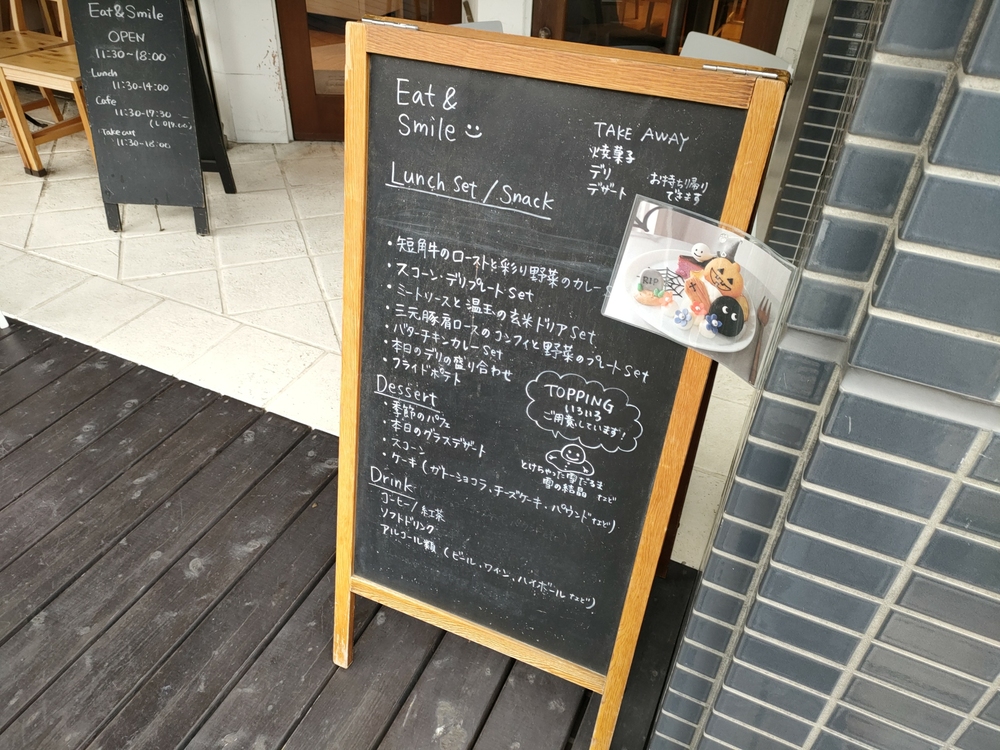 Eat & Smile
OPEN
11:30~18:00
Lunch
11:30-14:00
Cafe
11:30-17:30
Take out
11:30-18:00
Eat &
Smile
Lunch Set / Snack
・短角牛のローストと彩り野菜のカレー
・スコーン・デリプレートset
・ミートソースと温玉の玄米ドリアset
・三元豚肩ロースのコンフィと野菜のプレートset
・バターチキンカレーset
・本日のデリの盛り合わせ
・フライドポテト
Dessert
・季節のパフェ
・本日のグラスデザート
・スコーン
・ケーキ(ガトーショコラ、チーズケーキ、パウンドなど)
Drink
コーヒー/紅茶
ソフトドリンク
アルコール類(ビール、ワイン、ハイボールなど)
TAKE AWAY
焼菓子
デリ
デザート
お持ち帰り
できます
RIP
TOPPING
いろいろ
ご用意しています!
とけちゃった雪だるま
雪の結晶 など